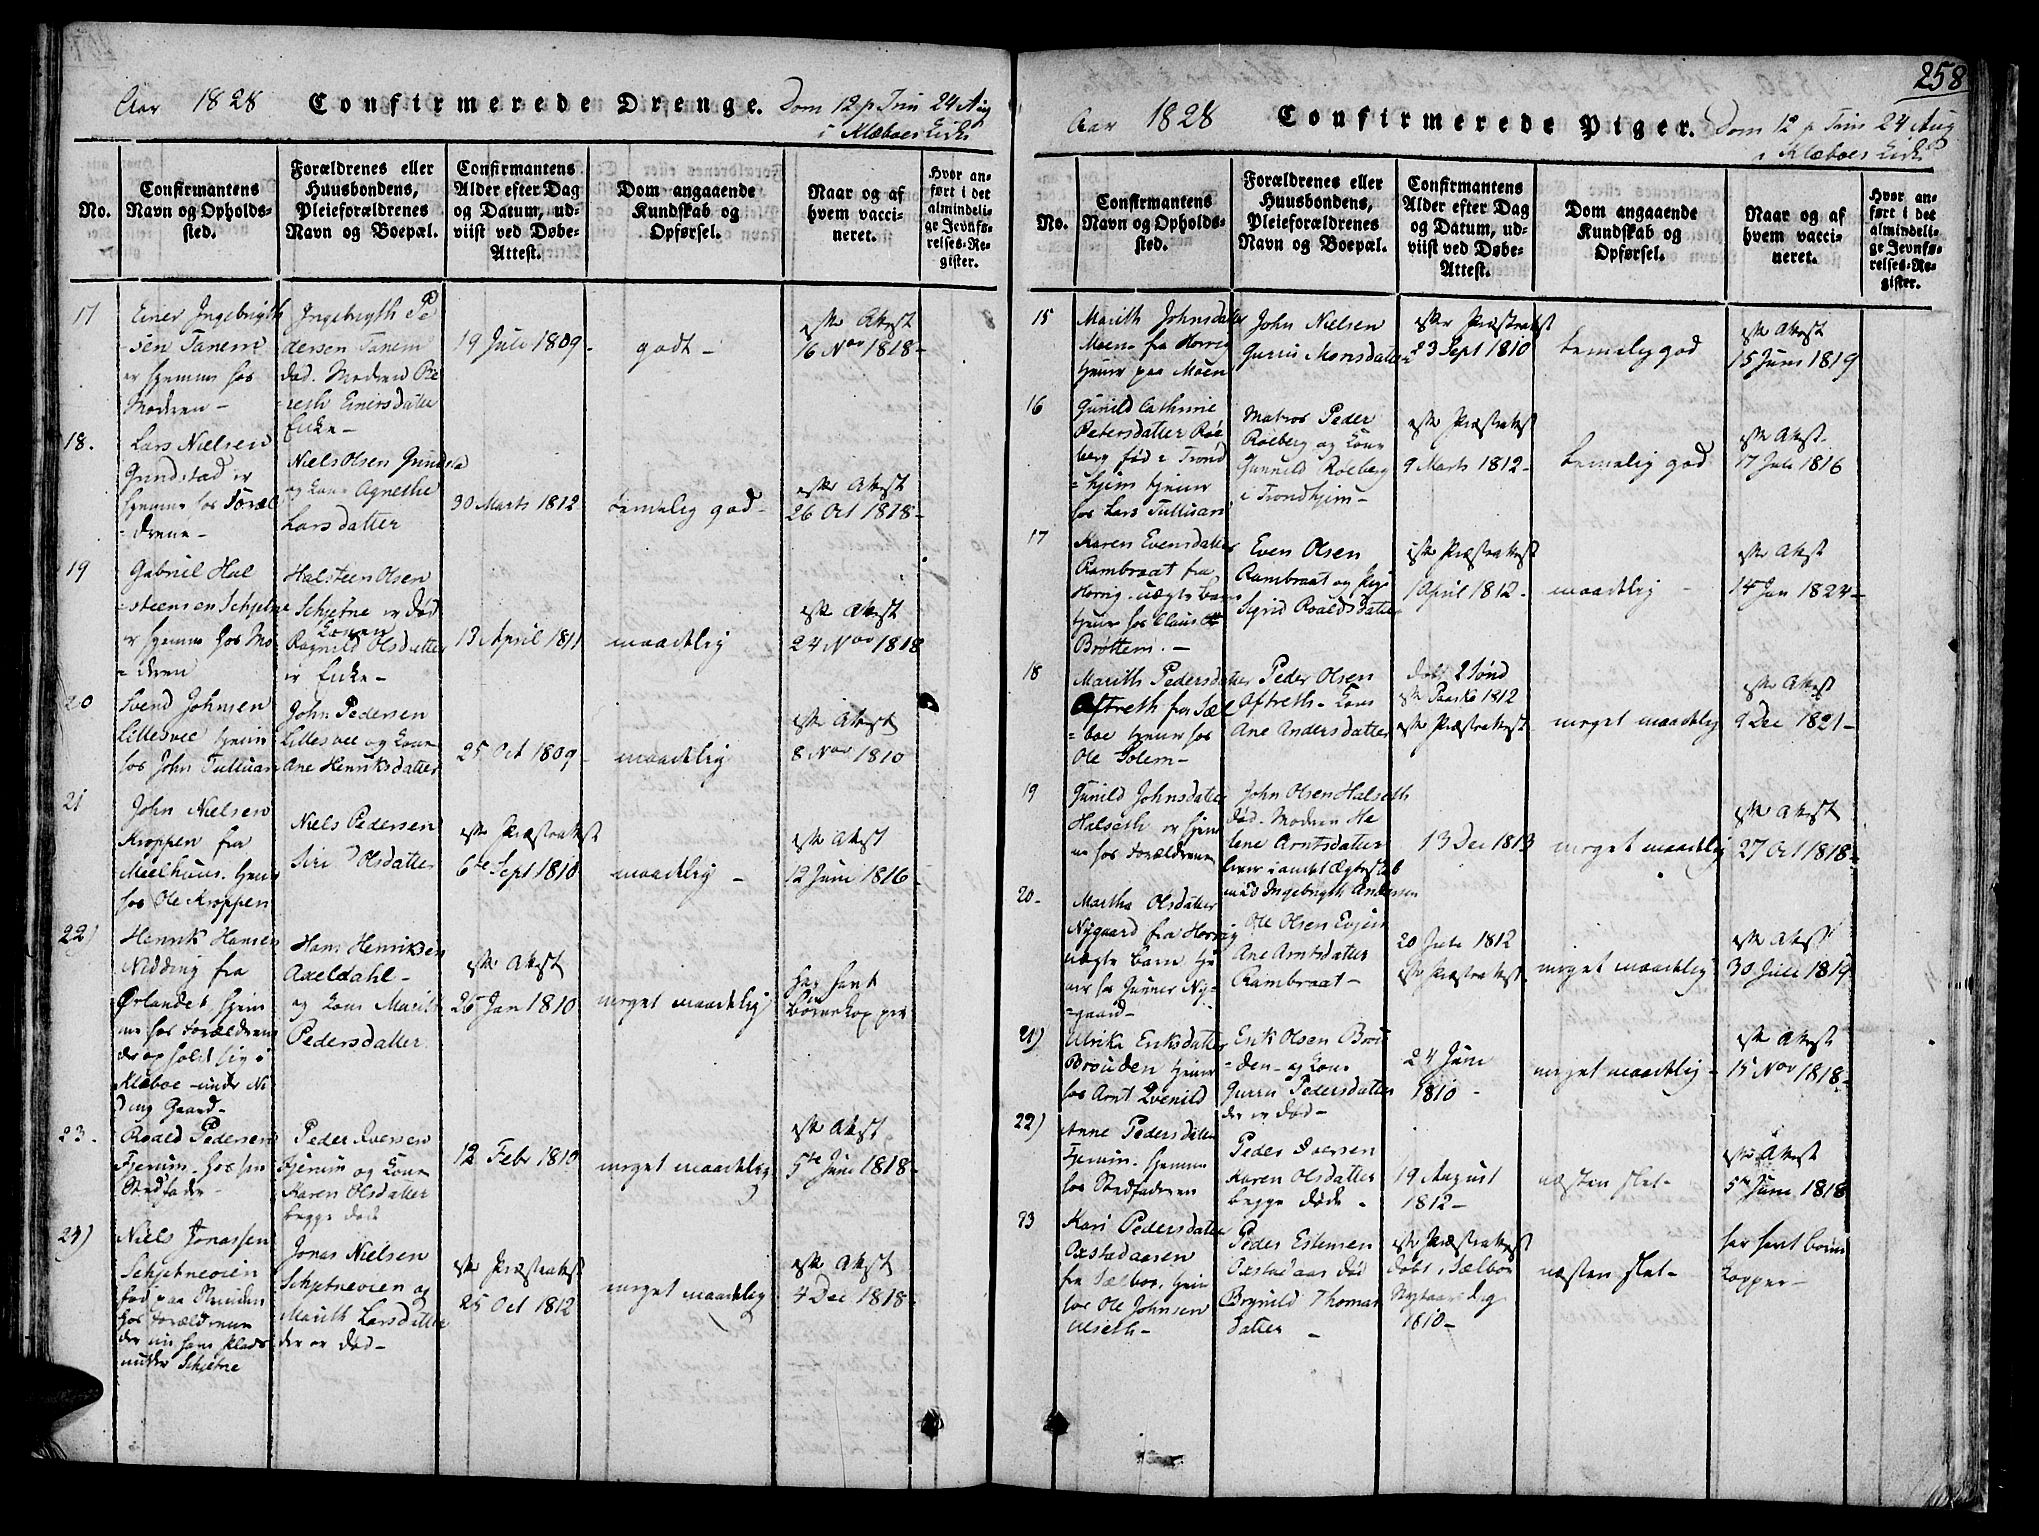 258
Aar 1828 Confirmerede Drenge. Dom 12 p Trin 24 Aug
i Klæboe Kirke
No.
Confirmantens
Navn og Opholds-
sted.
Forældrenes eller
Huusbondens,
Pleieforældrenes
Navn og Boepæl.
Confirmantens
Alder efter Dag
og Datum, ud-
viist ved Døbe-
Attest.
Dom angaaende
Kundskab og
Opførsel.
Naar og af
hvem vacci-
neret.
Hvor an-
ført i det
almindeli-
ge Jevnfø-
relses-Re-
gister.
17
Einer Ingebrigth
sen Tanem
er hjemme hos
Modren -
Ingebrigth Pe
dersen Tanem
død. Modren Be
reth Einersdatter
Enke -
19 Juli 1809 -
godt -
efter Attest
16 Nov 1818 -
18.
Lars Nielsen
Grindstad er
hjemme hos Foræl
drene -
Niels Olsen Grindsta
og Kone Agnethe
Larsdatter
30 Marts 1812
temelig god -
efter Attest
26 Oct 1818 -
19
Gabriel Hal
steensen Schjetne
er hjemme hos Mo
dren
Halsteen Olsen
Schjetne er død
Konen
Ragnild Olsdatter
er Enke -
13 April 1811
maadelig
efter Attest
24 Nov 1818
20
Svend Johnsen
Lillesvee tjener
hos John Tulluan
John Pedersen
Lillesvee og Kone
Ane Henriksdatter
25 Oct 1809 -
maadelig
efter Attest
8 Nov 1810
21
John Nielsen
Kroppen fra
Meelhuus. tjener
hos Ole Kroppen
Niels Pedersen
Siri Olsdatter
efter Præsteattest
6te Sept 1810
maadelig -
efter Attest
12 Juni 1816 -
22)
Henrik Hansen
Nidding fra
Ørlandet hjem
me hos Forældrene
der opholdt sig i
Klæboe under Ni
ding Gaard -
Hans Henriksen
Axeldahl -
og Kone Marith
Pedersdatter
efter Attest
26 Jan 1810
meget maadelig
har havt
Børnekopper
23.
Roald Pedersen
Fjerum. hos sin
Stedfader -
Peder Iversen
Fjerum og Kone
Karen Olsdatter
begge døde
12 Febr 1810
meget maadelig
efter Attest
5te Juni 1818 -
24)
Niels Jonassen
Schjetneeien
fød paa Stranden
hos Forældrene
der nu have Plads
under Schjetne
Jonas Nielsen
Schjetneeien og
Marith Larsdatter
der er død -
efter Præsteattest
25 Oct 1812
meget maadelig
efter Attest
4 Dec 1818 -
Aar 1828 Confirmerede Piger. Dom 12 p Trin 24 Aug
i Klæboe Kirke
No.
Confirmantens
Navn og Opholds-
sted.
Forældrenes eller
Huusbondens,
Pleieforældrenes
Navn og Boepæl.
Confirmantens
Alder efter Dag
og Datum, ud-
viist ved Døbe-
Attest.
Dom angaaende
Kundskab og
Opførsel.
Naar og af
hvem vacci-
neret.
Hvor an-
ført i det
almindeli-
ge Jevnfø-
relses-Re-
gister.
15
Marith Johnsdatter
Moen fra Horrig
tjener paa Moen
John Nielsen
Gurru Monsdatter
efter Præsteattest
23 Sept 1810
temelig god
efter Attest
15 Juni 1819
16
Gunild Cathrine
Petersdatter Roe
berg fød i Trond
hjem tjener
hos Lars Tulluan
Matros Peder
Roeberg og Kone
Gunnild Roeberg
i Trondhjem -
efter Præsteattest
9 Marts 1812 -
temelig god
efter Attest
17 Juli 1816
17
Karen Evensdatter
Rambraat fra
Horrig. uægte barn
tjener hos Claus
Brøttem. -
Even Olsen
Rambraat og Pige
Sigrid Roaldsdatter
efter Præsteattest
1 April 1812 -
maadelig -
efter Attest
14 Jan 1824 -
18
Marith Pedersdatter
Aftreth fra Sæl
boe tjener hos
Ole Solem -
Peder Olsen
Aftreth. Kone
Ane Andersdatter
døbt 2 Sønd
efter Paaske 1812
efter Præsteattest
meget maadelig
efter Attest
9 Dec 1821 -
19
Gunild Johnsdatter
Halseth er hjem
me hos Forældrene
John Olsen Halseth
død. Modren He
lene Arntsdatter
lever i andet Ægteskab
med Ingebrigth Andersen
13 Dec 1813
meget maadelig
efter Attest
27 Oct 1818 -
20 -
Martha Olsdatter
Nygaard fra Horrig
uægte barn tje
ner hos Gunner Ny-
gaard -
Ole Olsen Evjen
Ane Arntsdatter
Rambraat -
20 Juli 1812
efter Præsteattest
meget maadelig
efter Attest
30 Juli 1819 -
21)
Ulrika Eriksdatter
Bruuden tjener
hos Arnt Qvenild
Erik Olsen Bruu
den - og Kone
Gurru Pedersdatter
der er død -
24 Juni
1810 -
meget maadelig -
efter Attest
15 Nov 1818 -
22)
Anne Pedersdatter
Fjerum. hjemme
hos Stedfaderen
Peder Iversen
Karen Olsdatter
begge døde.
19 August
1812 -
næsten slet -
efter Attest
5te Juni 1818
23
Kari Pedersdatter
Oxstadaasen
fra Sælboe, tjener
hos Ole Johnsen
Ulseth -
Peder Estensen
Oxstadaas død
Brynild Thomas
datter -
efter Præsteattest
døbt i Sælboe
Nytaarsdag
1810 -
næsten slet -
har havt børne
kopper -